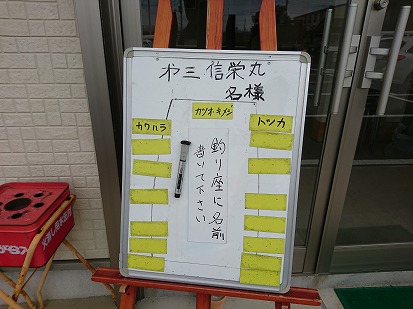 第三 信栄丸
名様
カツオ キメジ
カワハラ
トツカ
釣り座に名前
書いて下さい